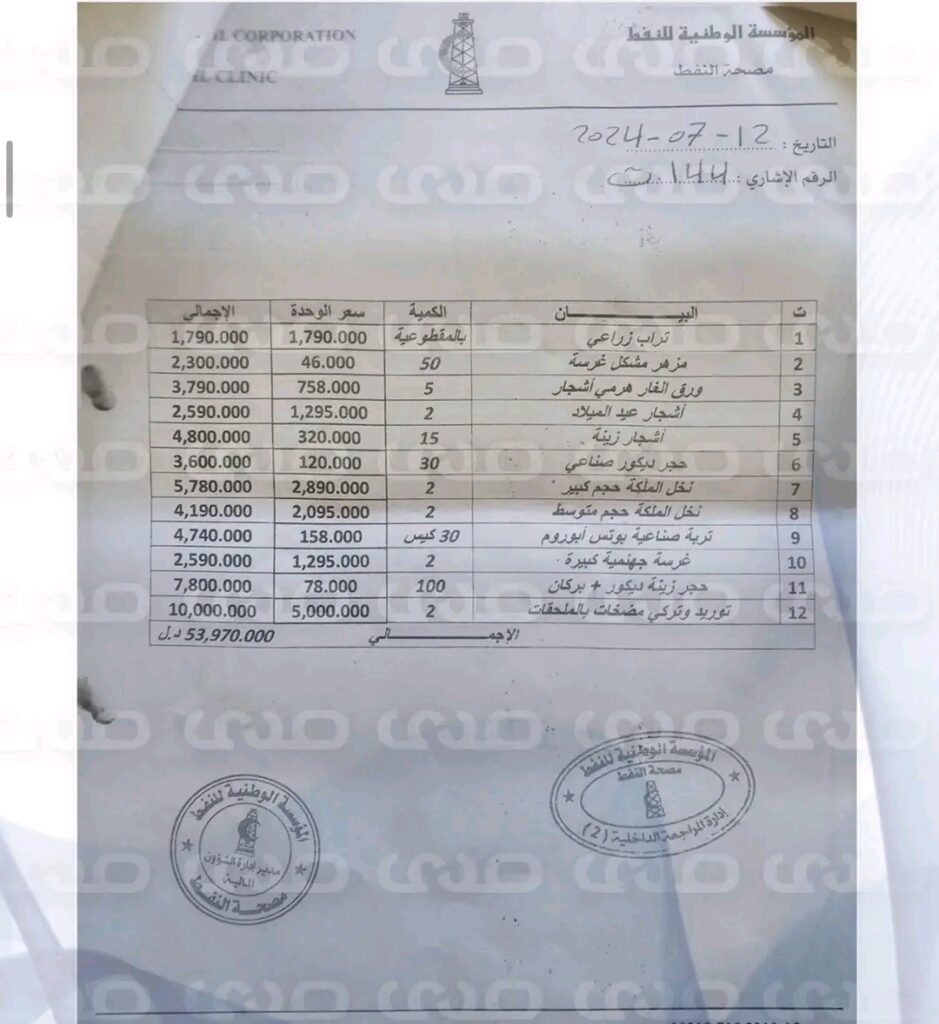 المؤسسة الوطنية للنفط
مصحة النفط
CORPORATION
CLINIC
التاريخ : 12-07-2024
الرقم الإشاري : ١٤٤.ت
ت البيـــــــان الكمية سعر الوحدة الإجمالي
1 تراب زراعي بالمقطوعية 1,790.000 1,790.000
2 مزهر مشكل غرسة 50 46.000 2,300.000
3 ورق الغار هرمي أشجار 5 758.000 3,790.000
4 أشجار عيد الميلاد 2 1,295.000 2,590.000
5 أشجار زينة 15 320.000 4,800.000
6 حجر ديكور صناعي 30 120.000 3,600.000
7 نخل الملكة حجم كبير 2 2,890.000 5,780.000
8 نخل الملكة حجم متوسط 2 2,095.000 4,190.000
9 تربة صناعية بوتس أبوروم 30 كيس 158.000 4,740.000
10 غرسة جهنمية كبيرة 2 1,295.000 2,590.000
11 حجر زينة ديكور + بركان 100 78.000 7,800.000
12 توريد وتركي مضخات بالملحقات 2 5,000.000 10,000.000
الإجمـــــــالي 53,970.000 د.ل
المؤسسة الوطنية للنفط
مصحة النفط
إدارة المراجعة الداخلية (2)
المؤسسة الوطنية للنفط
مدير إدارة الشؤون
المالية
مصحة النفط
صدى